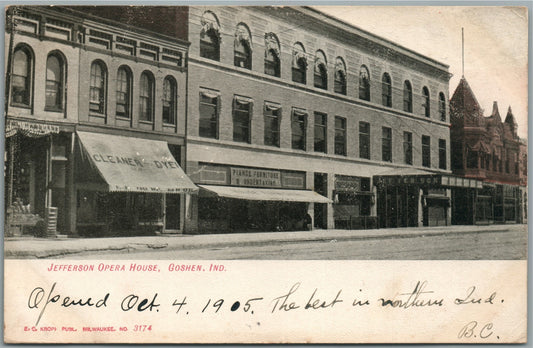 CLEANER & DYER
PIANOS, FURNITURE
& UNDERTAKING
JEFFERSON OPERA HOUSE, GOSHEN, IND.
Opened Oct. 4, 1905. The best in northern Ind.
B.C.
E. C. KROPP PUBL. MILWAUKEE. NO. 3174